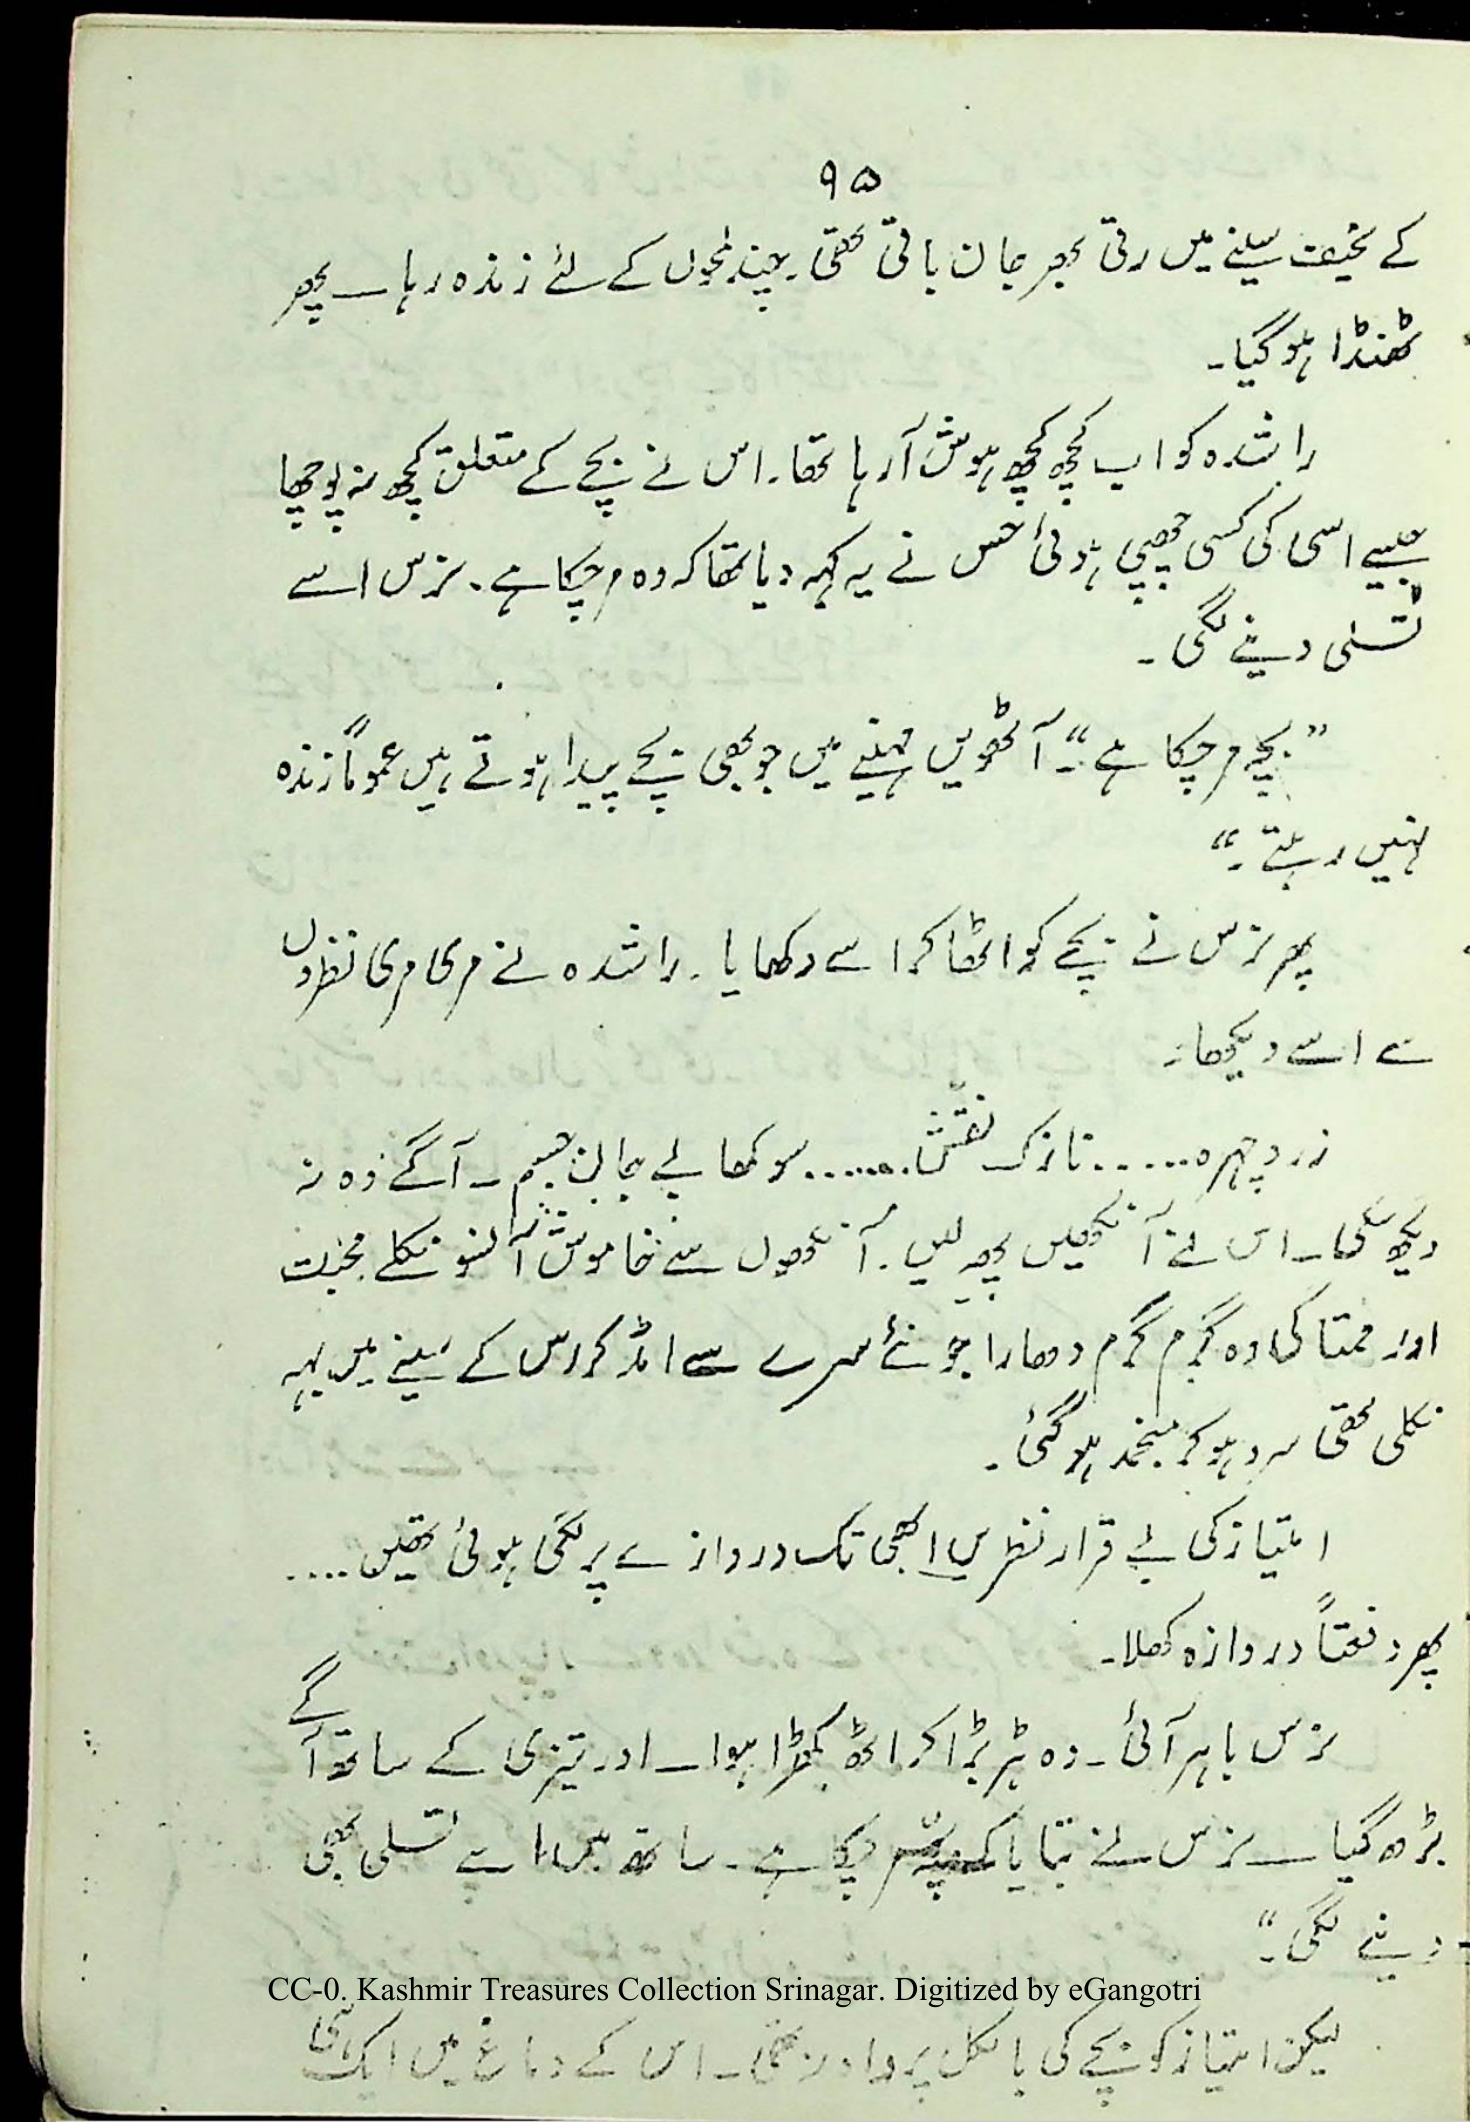 ۹۵
کے نحیف سینے میں رتی بھر جان باقی تھی۔ چند لمحوں کے لئے زندہ رہا — پھر
ٹھنڈا ہو گیا۔
راشدہ کو اب کچھ کچھ ہوش آ رہا تھا۔ اس نے بچے کے متعلق کچھ نہ پوچھا
جیسے اسی کی کسی چھپی ہوئی حس نے یہ کہہ دیا تھا کہ وہ مر چکا ہے۔ نرس اسے
تسلی دینے لگی۔
”بچہ مر چکا ہے“۔ آٹھویں مہینے میں جو بھی بچے پیدا ہوتے ہیں عموماً زندہ
نہیں رہتے۔“
پھر نرس نے بچے کو اٹھا کر اسے دکھایا۔ راشدہ نے مری مری نظروں
سے اسے دیکھا۔
زرد چہرہ ...... نازک نقش ...... سوکھا بے جان جسم — آگے وہ نہ
دیکھ سکی — اس نے آنکھیں پھیر لیں۔ آنکھوں سے خاموش آنسو نکلے محبت
اور ممتا کی وہ گرم گرم دھارا جو نئے سرے سے امڈ کر اس کے سینے میں بہہ
نکلی تھی سرد ہو کر منجمد ہو گئی۔
امتیاز کی بے قرار نظریں ابھی تک دروازے پر لگی ہوئی تھیں ....
پھر دفعتاً دروازہ کھلا۔
نرس باہر آئی۔ وہ ہڑبڑا کر اٹھ کھڑا ہوا — اور تیزی کے ساتھ آگے
بڑھ گیا — نرس نے بتایا کہ بچہ مر چکا ہے۔ ساتھ میں اسے تسلی بھی
دینے لگی۔“
لیکن امتیاز کو بچے کی بالکل پرواہ نہ تھی — اس کے دماغ میں ایک ہی
CC-0. Kashmir Treasures Collection Srinagar. Digitized by eGangotri